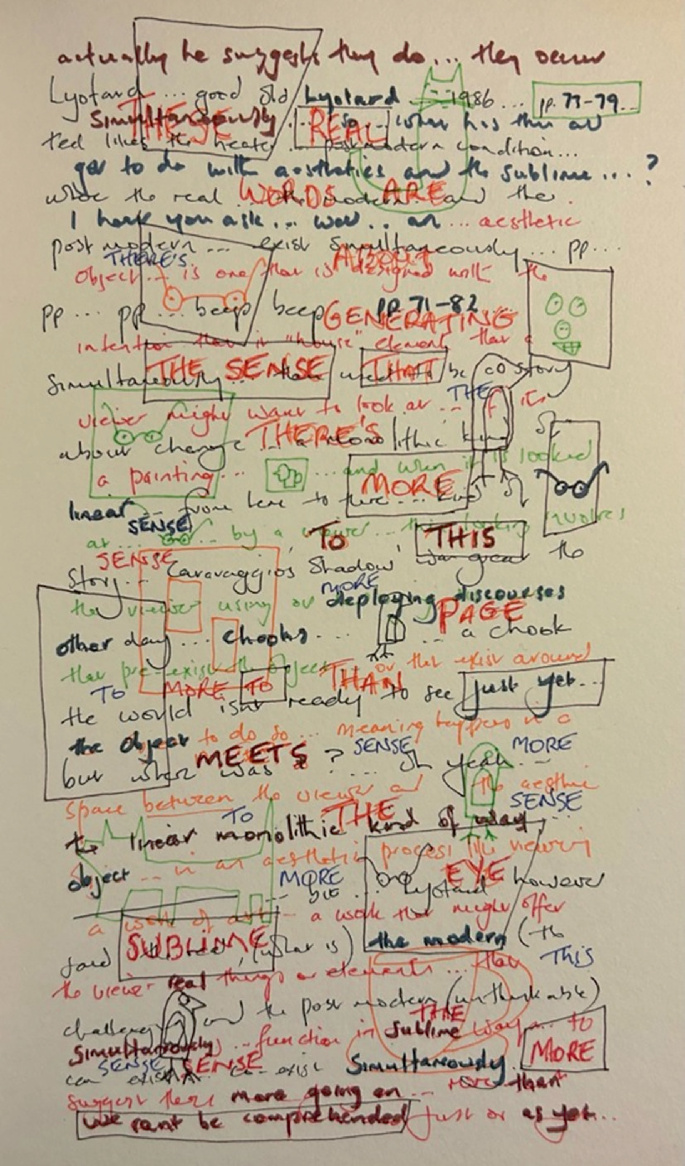 actually he suggests they do... they occur
Lyotard... good old Lyotard... 1986... pp. 73-79...
Simultaneously... so... what has this all
THESE REAL
got to do with aesthetics and the sublime...?
WORDS ARE
I hear you ask... well.. an... aesthetic
post modern... exist simultaneously... pp...
THERE'S ABOUT
object... is one that is designed with the
pp... pp... beep beep pp. 71-82
GENERATING
intention that it "house" elements that a
THE SENSE THAT
Simultaneously... be story
THE
viewer might want to look at... it is
THERE'S
about change monolithic kind of
a painting... and when it is looked
MORE
linear... from here to there... kind
SENSE
at... by a viewer... the looking involves
TO THIS
SENSE
Story... Caravaggios Shadow, was great the
MORE
the viewer using or deploying discourses
PAGE
other day... chooks... a chook
that pre-exist the object or that exist around
TO MORE TO THAN
the world isn't ready to see just yet...
the object to do so... meaning happens in a
MEETS SENSE MORE
but when was ?... oh yeah...
space between the viewer and the aesthetic
SENSE
TO THE
the linear monolithic kind of way
object... in an aesthetic process in viewing
MORE EYE
but... Lyotard however
a work of art... a work that might offer
SUBLIME
said the real, (what is) the modern (the
This
the viewer real things or elements... that
challenging) and the post modern (unthinkable)
THE
Simultaneously... function in sublime ways... to
MORE
SENSE SENSE
can exist... can exist Simultaneously... than
suggest there more going on...
we cant be comprehended just or as yet..